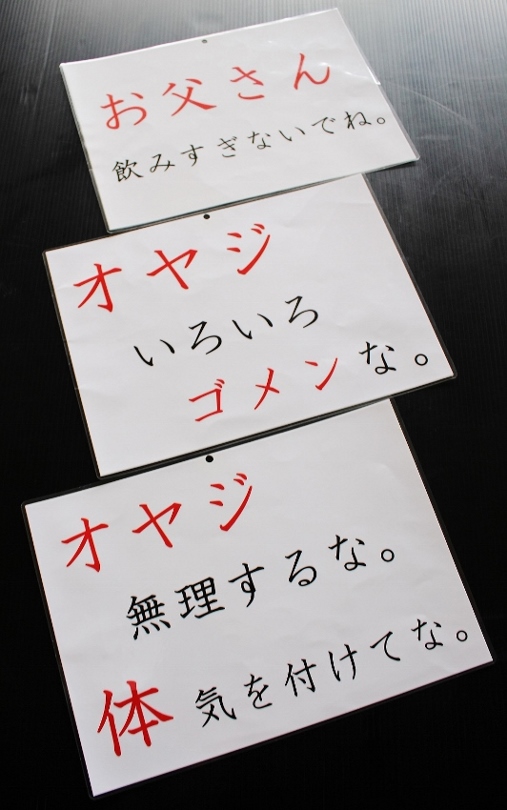 お父さん
飲みすぎないでね。
オヤジ
いろいろ
ゴメンな。
オヤジ
無理するな。
体気を付けてな。